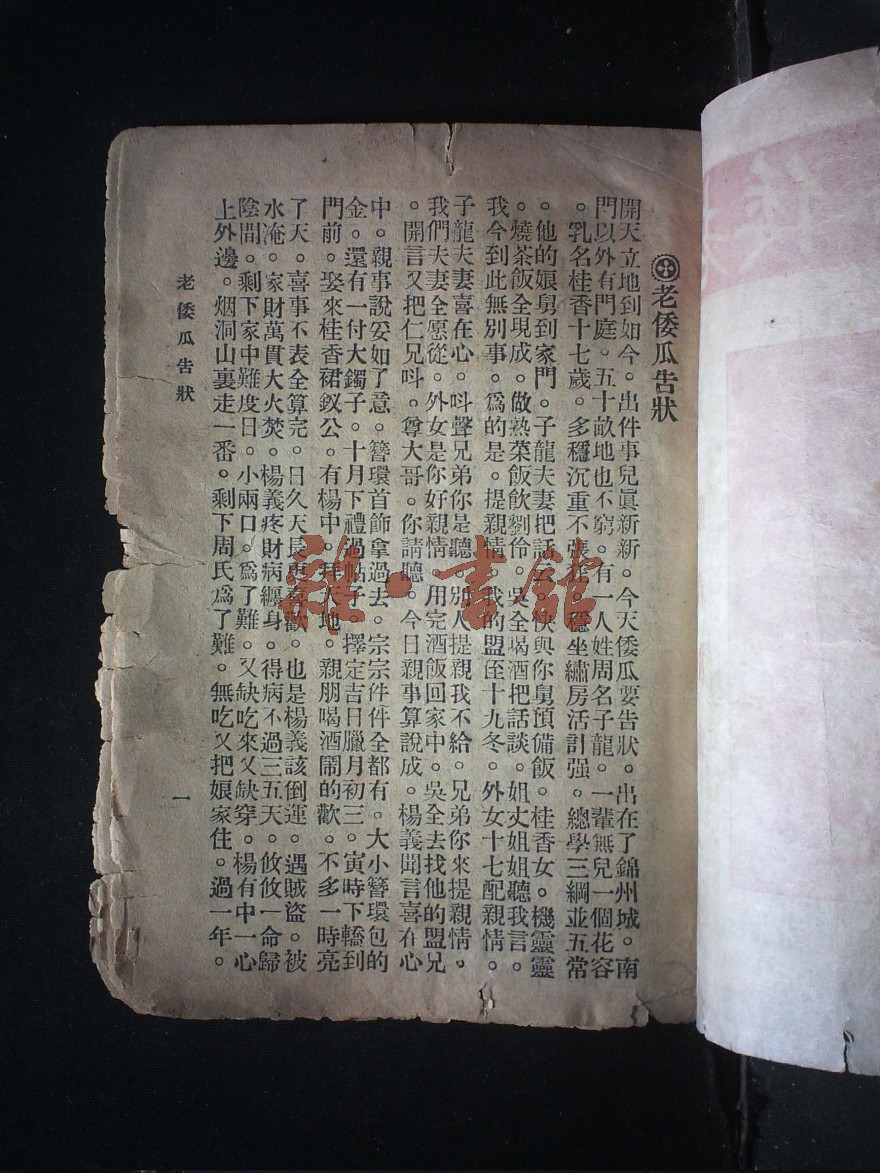 老倭瓜告狀
開天立地到如今。出件事兒眞新新。今天倭瓜要告狀。出在了錦州城。南
門以外有門庭。五十畝地也不窮。有一人姓周名子龍。一輩無兒一個花容
。乳名桂香十七歲。多穩沉重不張狂。穩坐繡房活計强。總學三綱並五常
。他的娘舅到家門。子龍夫妻把話云。快與你舅預備飯。桂香女。機靈靈
。燒茶飯全現成。做熟菜飯飲劉伶。吳全喝酒把話談。姐丈姐姐聽我言。
我今到此無別事。爲的是。提親情。我的盟至十九冬。外女十七配親情。
子龍夫妻喜在心。呌聲兄弟你是聽。別人提親我不給。兄弟你來提親情。
我們夫妻全愿從。外女是你好親情。用完酒飯回家中。吳全去找他的盟兄
。開言又把仁兄呌。尊大哥。你請聽。今日親事算說成。楊義聞言喜在心
中。親事說妥如了意。簪環首飾拿過去。宗宗件件全都有。大小簪環包的
金。還有一付大鐲子。十月下禮過帖子。擇定吉日臘月初三。寅時下轎到
門前。娶來桂香裙釵公。有楊中。拜天地。親朋喝酒鬧的歡。不多一時亮
了天。喜事不表全算完。日久天長更喜歡。也是楊義該倒運。遇賊盜。被
水淹。家財萬貫大火焚。楊義疼財病纒身。得病不過三五天。攸攸一命歸
陰間。剩下家中難度日。小兩口。爲了難。又缺吃來又缺穿。楊有中一心
上外邊。烟洞山裏走一番。剩下周氏爲了難。無吃又把娘家住。過一年。
老倭瓜告狀
一
雜·書館